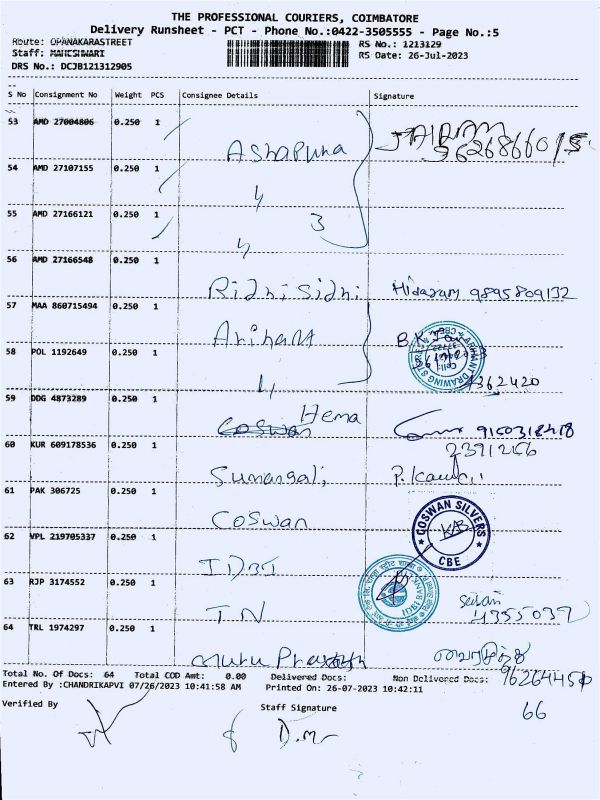 THE PROFESSIONAL COURIERS, COIMBATORE
Delivery Runsheet - PCT - Phone No.:0422-3505555 - Page No.:5
Route: OPANAKARASTREET
RS No.: 1213129
Staff: MAHESHWARI
RS Date: 26-Jul-2023
DRS No.: DCJB121312905
S No Consignment No Weight PCS Consignee Details Signature
53 AMD 27004806 0.250 1
Ashapura
54 AMD 27107155 0.250 1
55 AMD 27166121 0.250 1
3
56 AMD 27166548 0.250 1
Ridhi Sidhi 9895809132
57 MAA 860715494 0.250 1
Arihant
58 POL 1192649 0.250 1
4362420
59 DDG 4873289 0.250 1
Hema
Coswan
60 KUR 609178536 0.250 1
Sumangali
61 PAK 306725 0.250 1
Coswan
COSWAN SILVERS
CBE
62 VPL 219705337 0.250 1
IDBI
IDBI BANK
63 RJP 3174552 0.250 1
TN
64 TRL 1974297 0.250 1
Total No. Of Docs: 64 Total COD Amt: 0.00 Delivered Docs: Non Delivered Docs:
Entered By :CHANDRIKAPVI 07/26/2023 10:41:58 AM Printed On: 26-07-2023 10:42:11
66
Verified By Staff Signature